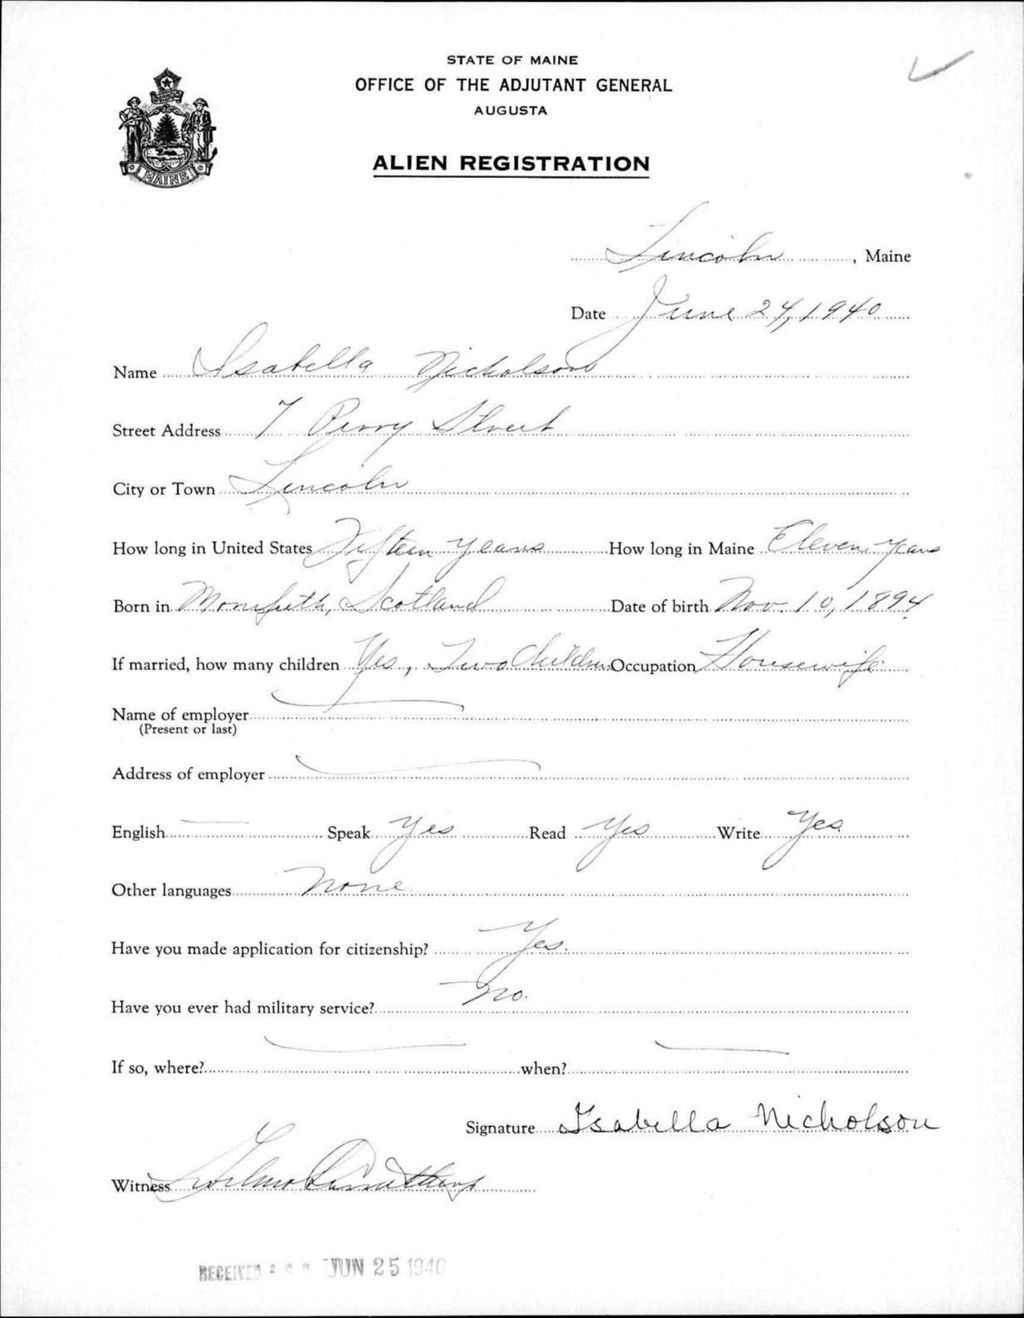 STATE OF MAINE
OFFICE OF THE ADJUTANT GENERAL
AUGUSTA
MAINE
ALIEN REGISTRATION
Lincoln, Maine
Date June 24, 1940
Name Isabella Nicholson
Street Address 7 Perry Street
City or Town Lincoln
How long in United States Fifteen years How long in Maine Eleven years
Born in Monifieth, Scotland Date of birth Nov. 10, 1894
If married, how many children Yes, Two Children Occupation Housewife
Name of employer
(Present or last)
Address of employer
English Speak Yes Read Yes Write Yes
Other languages none
Have you made application for citizenship? Yes.
Have you ever had military service? No.
If so, where? when?
Signature Isabella Nicholson
Witness
RECEIVED JUN 25 1940